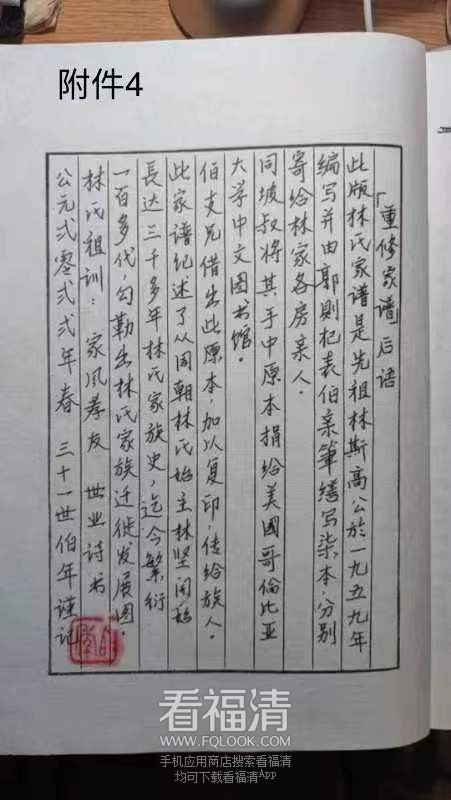 附件4
「重修家谱」后语
此版林氏家谱是先祖林斯高公於一九五九年
编写并由郭则杞表伯亲筆缮写柒本，分别
寄给林家各房亲人。
同坡叔将其手中原本捐给美國哥倫比亚
大学中文图书馆。
伯支兄借出此原本，加以复印，传给族人。
此家谱纪述了从周朝林氏始主林坚闻始
長达三千多年林氏家族史，迄今繁衍
一百多代，勾勒出林氏家族迁徙发展图。
林氏祖训：家风孝友 世业诗书
公元贰零贰贰年春 三十一世伯年谨记
看福清
WWW.FQLOOK.COM
手机应用商店搜索看福清
均可下载看福清APP